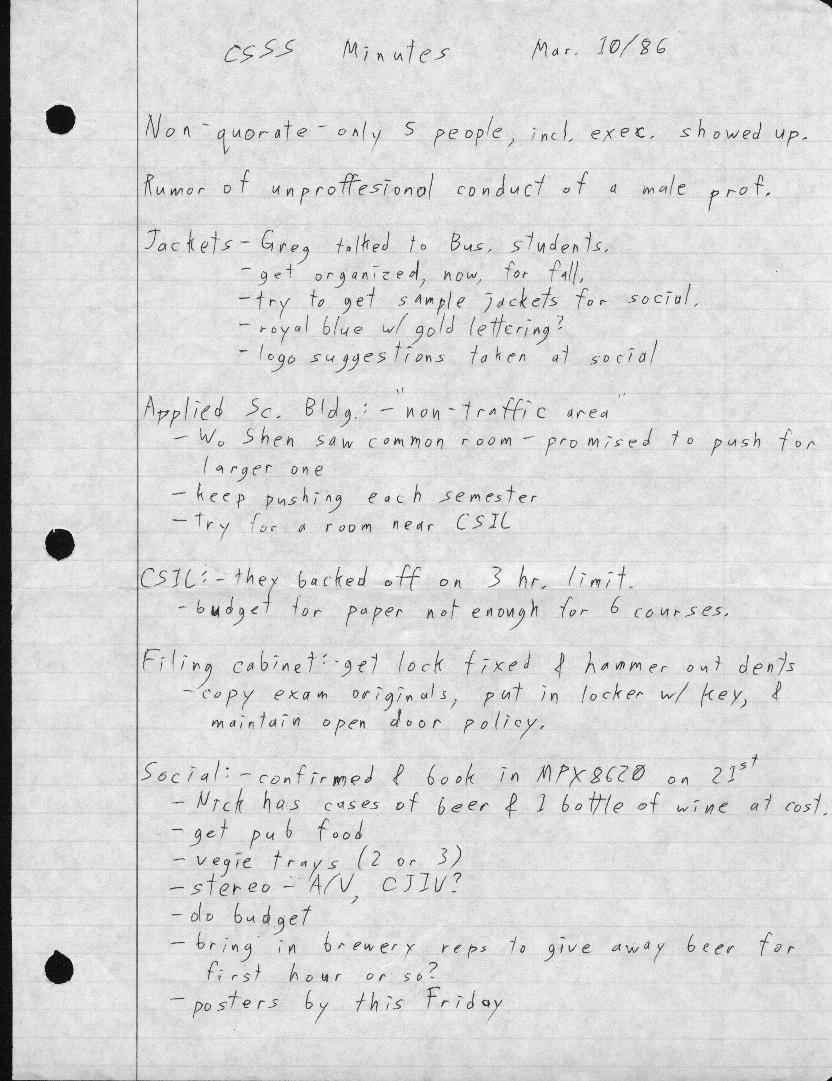 CSSS Minutes Mar. 10/86
Non-quorate - only 5 people, incl. exec. showed up.
Rumor of unproffesional conduct of a male prof.
Jackets - Greg talked to Bus. students.
- get organized, now, for fall.
- try to get sample jackets for social.
- royal blue w/ gold lettering?
- logo suggestions taken at social
Applied Sc. Bldg.: - "non-traffic area"
- Wo Shen saw common room - promised to push for
larger one
- keep pushing each semester
- try for a room near CSIL
CSIL: - they backed off on 3 hr. limit.
- budget for paper not enough for 6 courses.
Filing cabinet: - get lock fixed & hammer out dents
- copy exam originals, put in locker w/ key, &
maintain open door policy.
Social: - confirmed & book in MPX8620 on 21st
- Nick has cases of beer & 1 bottle of wine at cost.
- get pub food
- vegie trays (2 or 3)
- stereo - A/V, CJIV?
- do budget
- bring in brewery reps to give away beer for
first hour or so?
- posters by this Friday